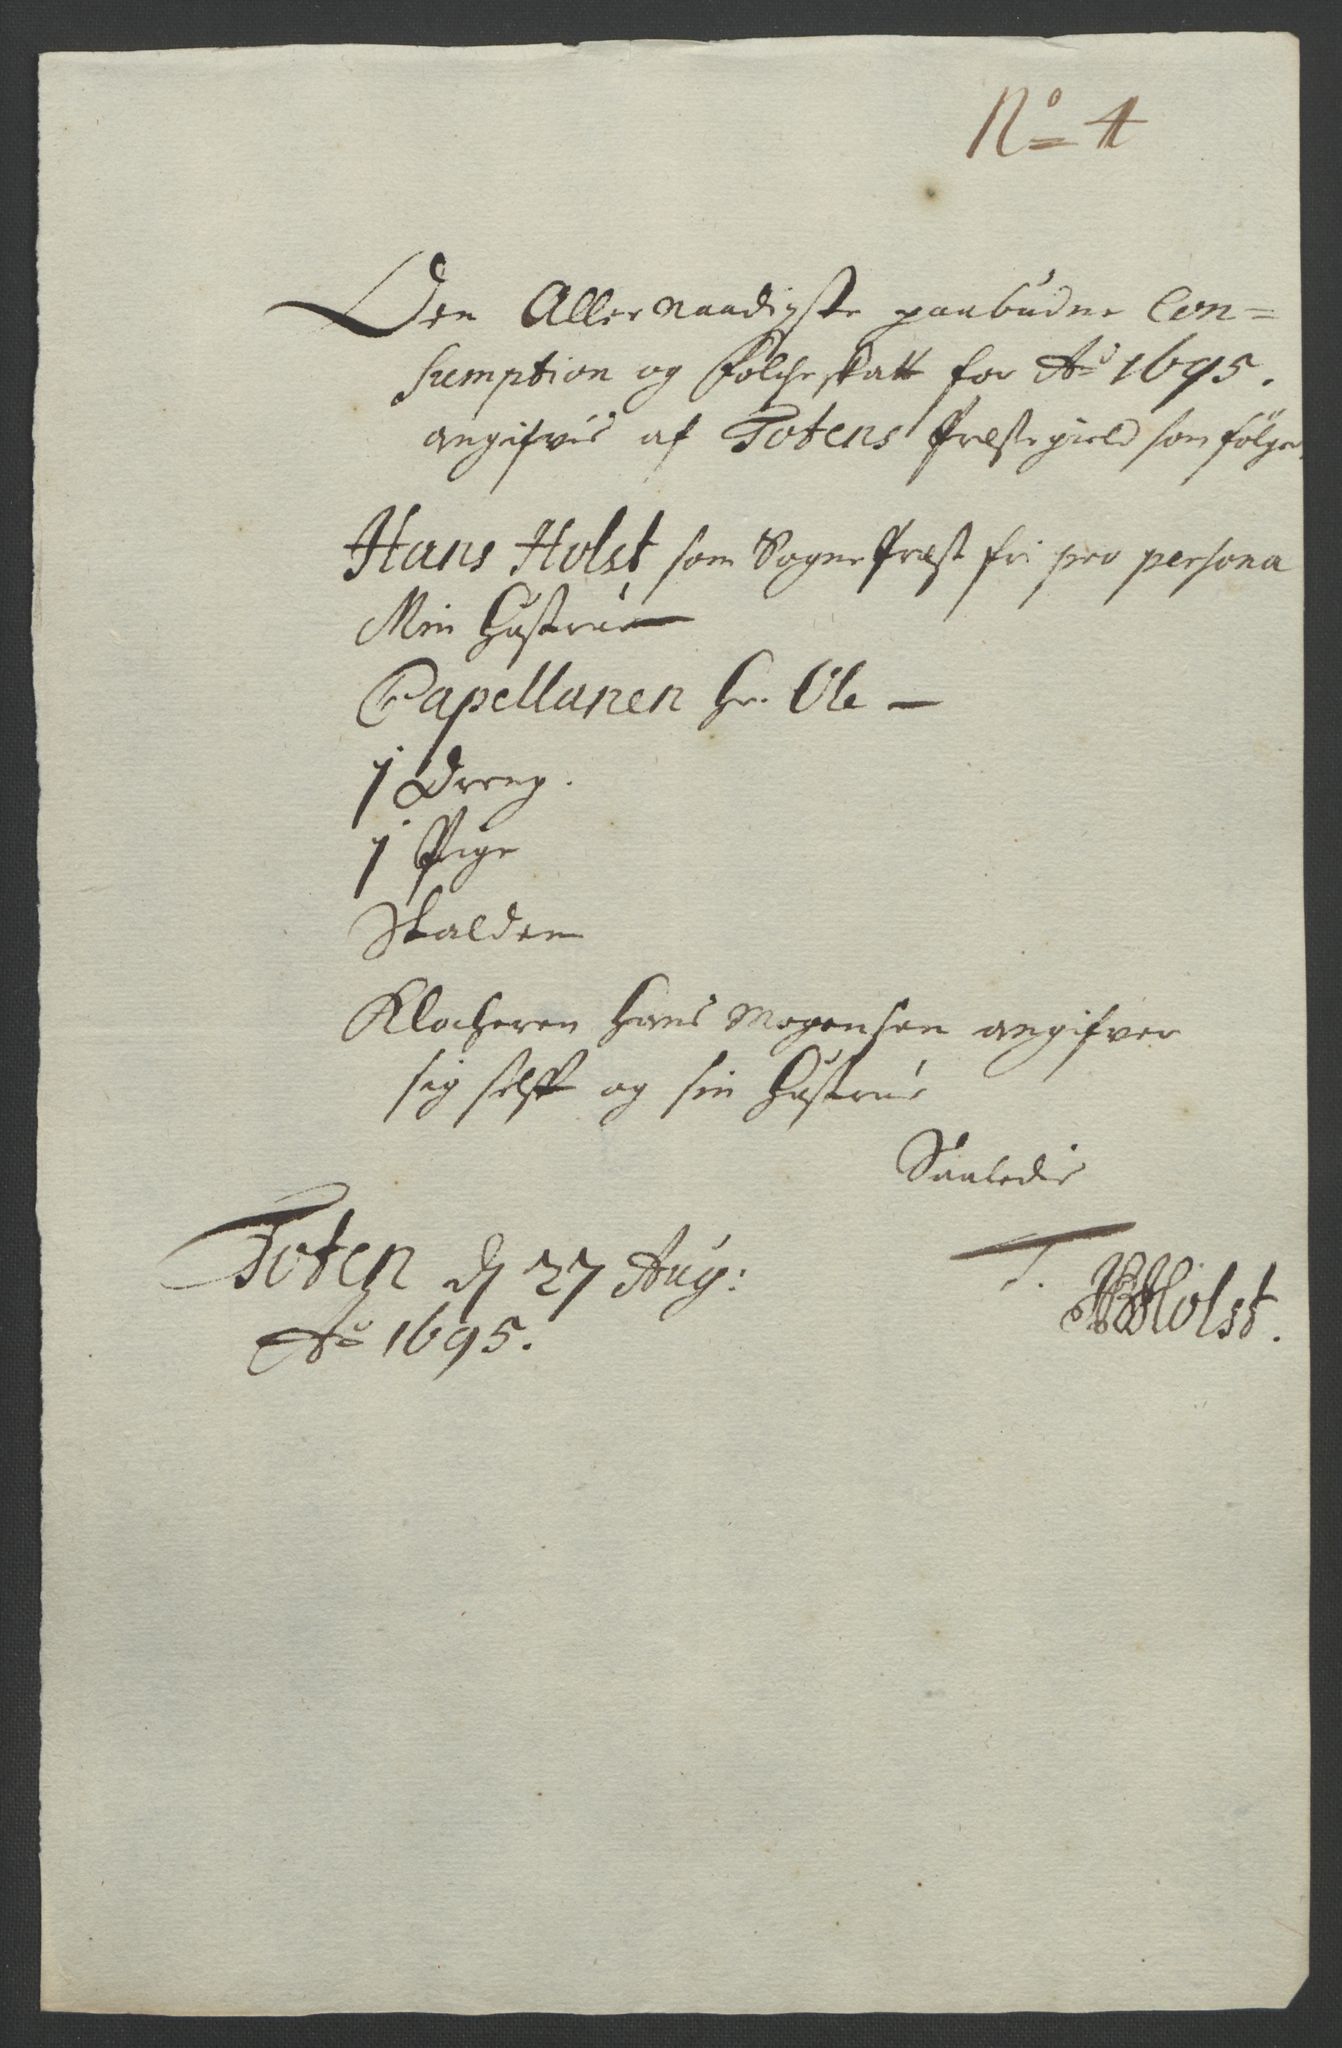 No 4
Den Allernaadigste paabudne Con=
sumption og Folcheskatt for Ao 1695.
angifvis af Totens Præstegield som følger.
Hans Holst som Sogne Præst fri pro persona
Min Hustrue
Capellanen Hr. Ole
1 Dreng.
1 Pige
Skalden
Klocheren Hans Mogensen angifver
sig selff og sin Hustrue
Saaledis
Toten d 27 Aug:
Ao 1695.
T. Holst.